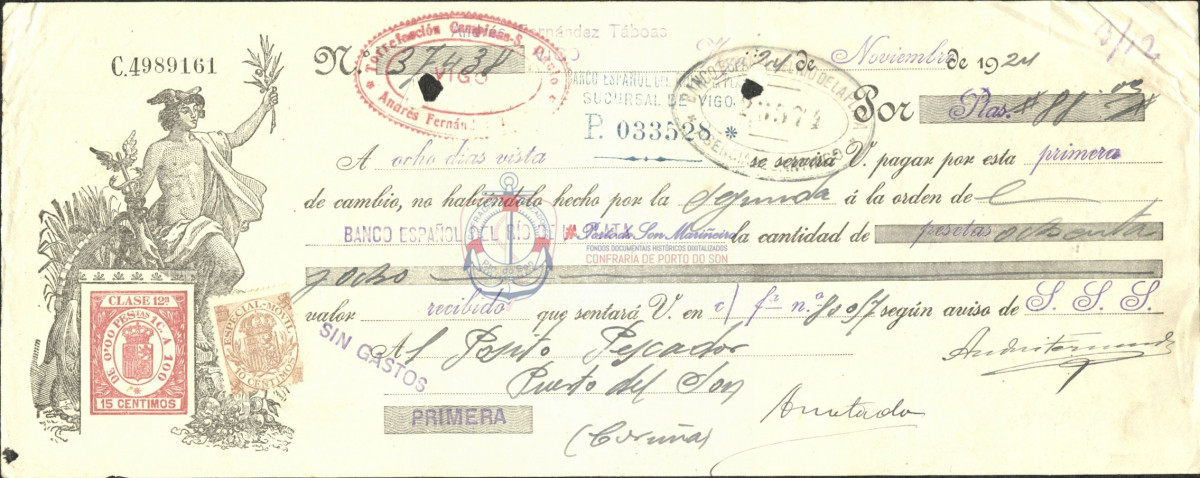 C.4989161
Nº 37438
Andrés Fernández Táboas
Torrefacción Campinas-S. Paulo
VIGO
Andrés Fernánd
Noviembre de 1924
15/12
BANCO ESPAÑOL DEL
SUCURSAL DE VIGO
P. 033528 *
23574
Por Ptas. # 88.00 #
A ocho días vista se servirá V. pagar por esta primera
de cambio, no habiéndolo hecho por la segunda á la orden de
BANCO ESPAÑOL DEL RÍO DE LA PLATA la cantidad de pesetas ochenta
y ocho
Porto do Son Mariñeiro
FONDOS DOCUMENTAIS HISTÓRICOS DIXITALIZADOS
CONFRARÍA DE PORTO DO SON
valor recibido que sentará V. en c/ fª n.º según aviso de S. S. S.
SIN GASTOS
Al Pósito Pescador
Puerto del Son
(Coruña)
PRIMERA
Anotado
CLASE 12ª
DE 0'00 PESETAS 1C. A 100
15 CENTIMOS
ESPECIAL-MOVIL
10 CENTIMOS